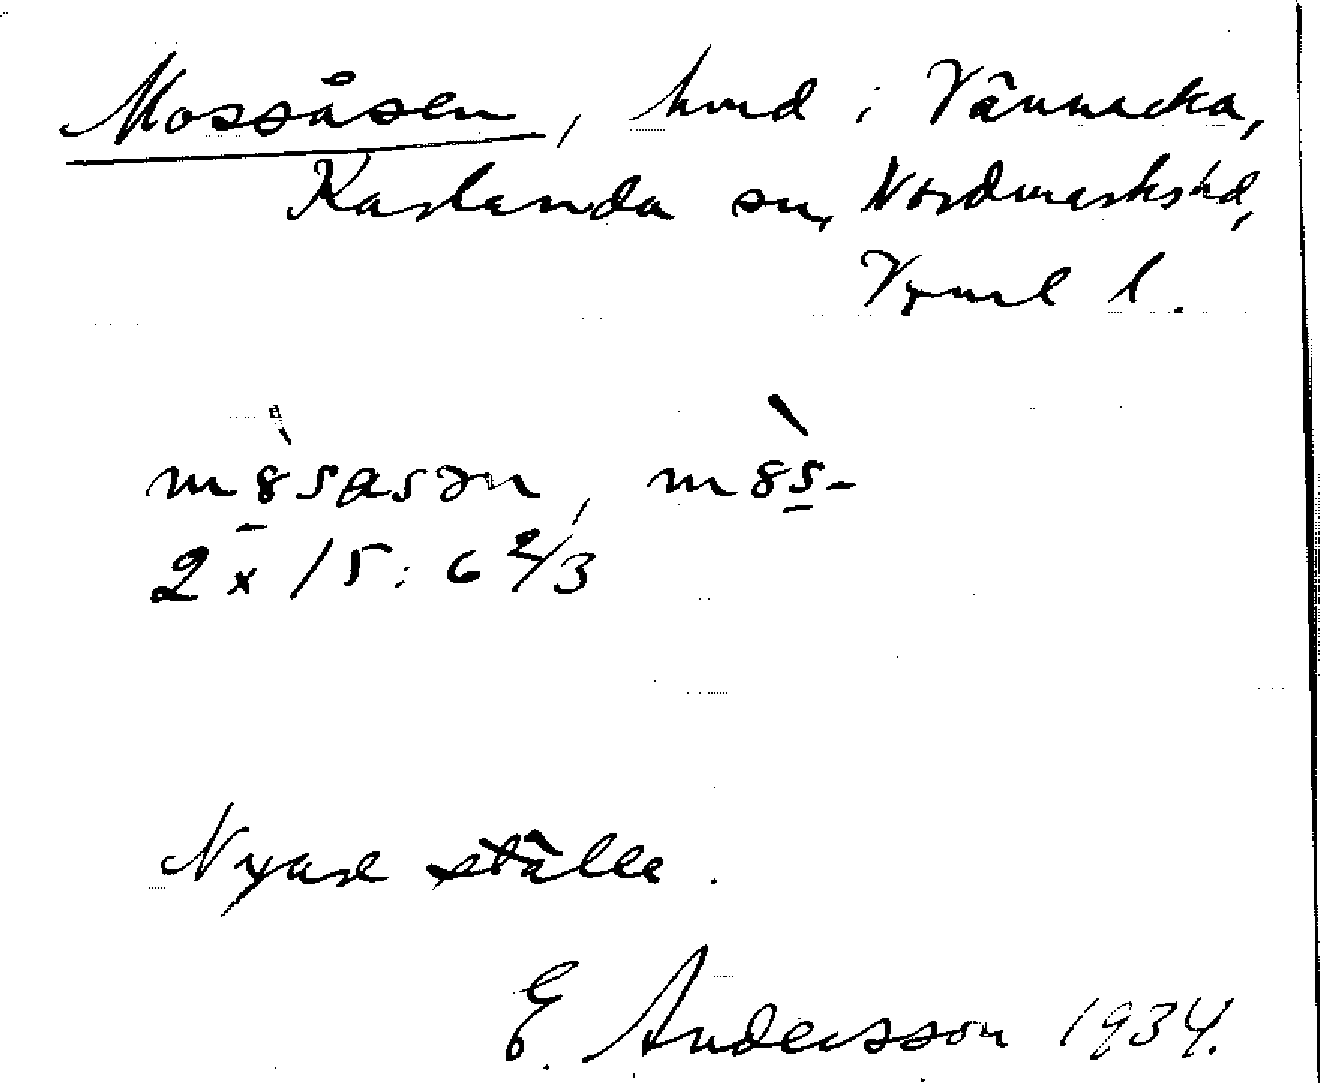 Mossåsen, hmd i Vännacka,
Karlanda sn, Nordmarks hd,
Verml l.
m8̠̀sasən, m8̀s̠-
2 x 15: 6 2/3
Nyare ställe.
E. Andersson 1934.